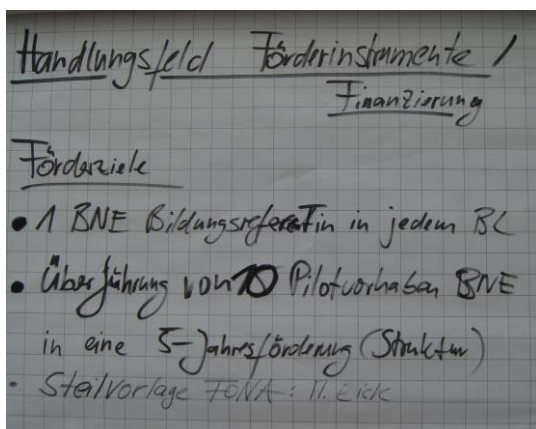 Handlungsfeld Förderinstrumente /
Finanzierung
Förderziele
• 1 BNE Bildungsreferatin in jedem BL
• Überführung von 10 Pilotvorhaben BNE
in eine 5-Jahresförderung (Struktur)
• Steilvorlage FONA: